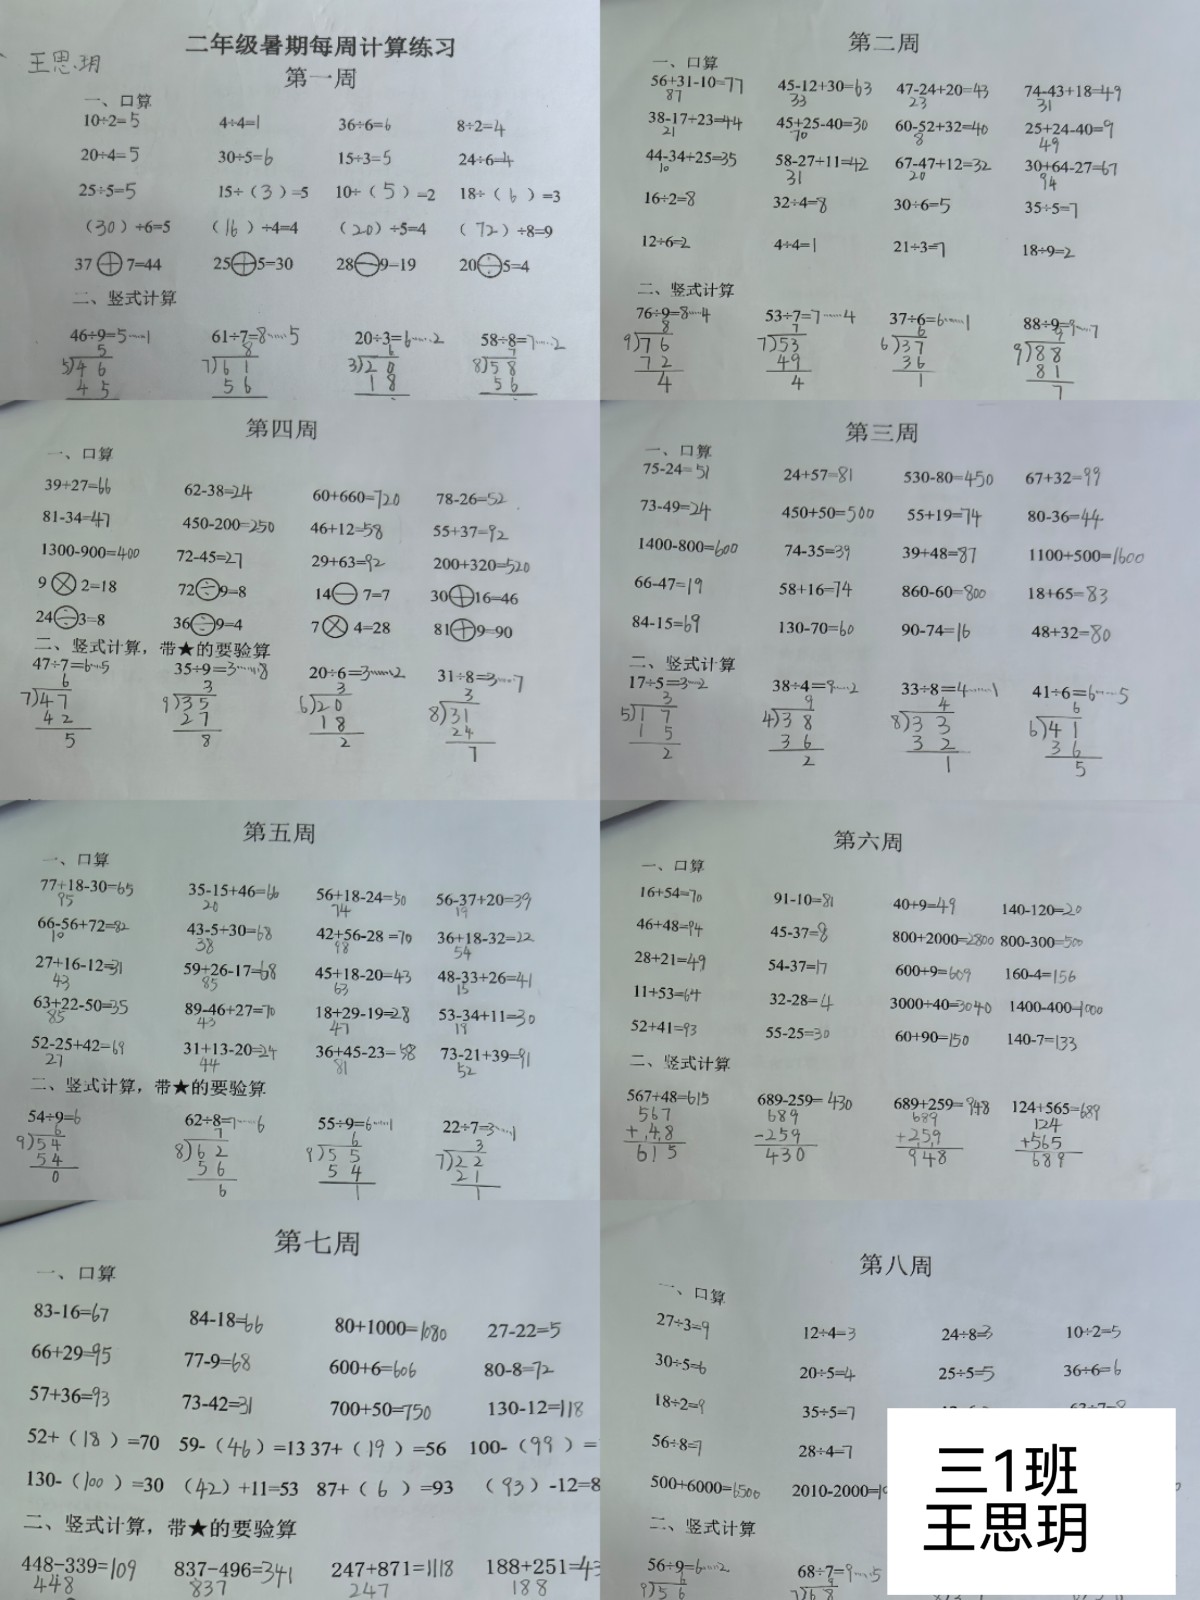 二年级暑期每周计算练习
王思玥
第一周
一、口算
10÷2=5 4÷4=1 36÷6=6 8÷2=4
20÷4=5 30÷5=6 15÷3=5 24÷6=4
25÷5=5 15÷（3）=5 10÷（5）=2 18÷（6）=3
（30）÷6=5 （16）÷4=4 （20）÷5=4 （72）÷8=9
37+7=44 25+5=30 28−9=19 20÷5=4
二、竖式计算
46÷9=5……1 61÷7=8……5 20÷3=6……2 58÷8=7……2
5 8 6 7
5)46 7)61 3)20 8)58
45 56 18 56
第二周
一、口算
56+31-10=77 45-12+30=63 47-24+20=43 74-43+18=49
87 33 23 31
38-17+23=44 45+25-40=30 60-52+32=40 25+24-40=9
21 70 8 49
44-34+25=35 58-27+11=42 67-47+12=32 30+64-27=67
10 31 20 94
16÷2=8 32÷4=8 30÷6=5 35÷5=7
12÷6=2 4÷4=1 21÷3=7 18÷9=2
二、竖式计算
76÷9=8……4 53÷7=7……4 37÷6=6……1 88÷9=9……7
8 7 6 9
9)76 7)53 6)37 9)88
72 49 36 81
4 4 1 7
第四周
一、口算
39+27=66 62-38=24 60+660=720 78-26=52
81-34=47 450-200=250 46+12=58 55+37=92
1300-900=400 72-45=27 29+63=92 200+320=520
9×2=18 72÷9=8 14−7=7 30+16=46
24÷3=8 36÷9=4 7×4=28 81+9=90
二、竖式计算，带★的要验算
47÷7=6……5 35÷9=3……8 20÷6=3……2 31÷8=3……7
6 3 3 3
7)47 9)35 6)20 8)31
42 27 18 24
5 8 2 7
第三周
一、口算
75-24=51 24+57=81 530-80=450 67+32=99
73-49=24 450+50=500 55+19=74 80-36=44
1400-800=600 74-35=39 39+48=87 1100+500=1600
66-47=19 58+16=74 860-60=800 18+65=83
84-15=69 130-70=60 90-74=16 48+32=80
二、竖式计算
17÷5=3…2 38÷4=9……2 33÷8=4……1 41÷6=6……5
3 9 4 6
5)17 4)38 8)33 6)41
15 36 32 36
2 2 1 5
第五周
一、口算
77+18-30=65 35-15+46=66 56+18-24=50 56-37+20=39
95 20 74 19
66-56+72=82 43-5+30=68 42+56-28=70 36+18-32=22
10 38 98 54
27+16-12=31 59+26-17=68 45+18-20=43 48-33+26=41
43 85 63 15
63+22-50=35 89-46+27=70 18+29-19=28 53-34+11=30
85 43 47 19
52-25+42=69 31+13-20=24 36+45-23=58 73-21+39=91
27 44 81 52
二、竖式计算，带★的要验算
54÷9=6 62÷8=7……6 55÷9=6……1 22÷7=3……1
6 7 6 3
9)54 8)62 9)55 7)22
54 56 54 21
0 6 1 1
第六周
一、口算
16+54=70 91-10=81 40+9=49 140-120=20
46+48=94 45-37=8 800+2000=2800 800-300=500
28+21=49 54-37=17 600+9=609 160-4=156
11+53=64 32-28=4 3000+40=3040 1400-400=1000
52+41=93 55-25=30 60+90=150 140-7=133
二、竖式计算
567+48=615 689-259=430 689+259=948 124+565=689
567 689 689 124
+48 -259 +259 +565
615 430 948 689
第七周
一、口算
83-16=67 84-18=66 80+1000=1080 27-22=5
66+29=95 77-9=68 600+6=606 80-8=72
57+36=93 73-42=31 700+50=750 130-12=118
52+（18）=70 59-（46）=13 37+（19）=56 100-（99）=
130-（100）=30 （42）+11=53 87+（6）=93 （93）-12=8
二、竖式计算，带★的要验算
448-339=109 837-496=341 247+871=1118 188+251=43
448 837 247 188
第八周
一、口算
27÷3=9 12÷4=3 24÷8=3 10÷2=5
30÷5=6 20÷5=4 25÷5=5 36÷6=6
18÷2=9 35÷5=7
56÷8=7 28÷4=7
500+6000=6500 2010-2000=1
二、竖式计算
56÷9=6……2 68÷7=9……5
6 9
9)56 7)68
三1班
王思玥